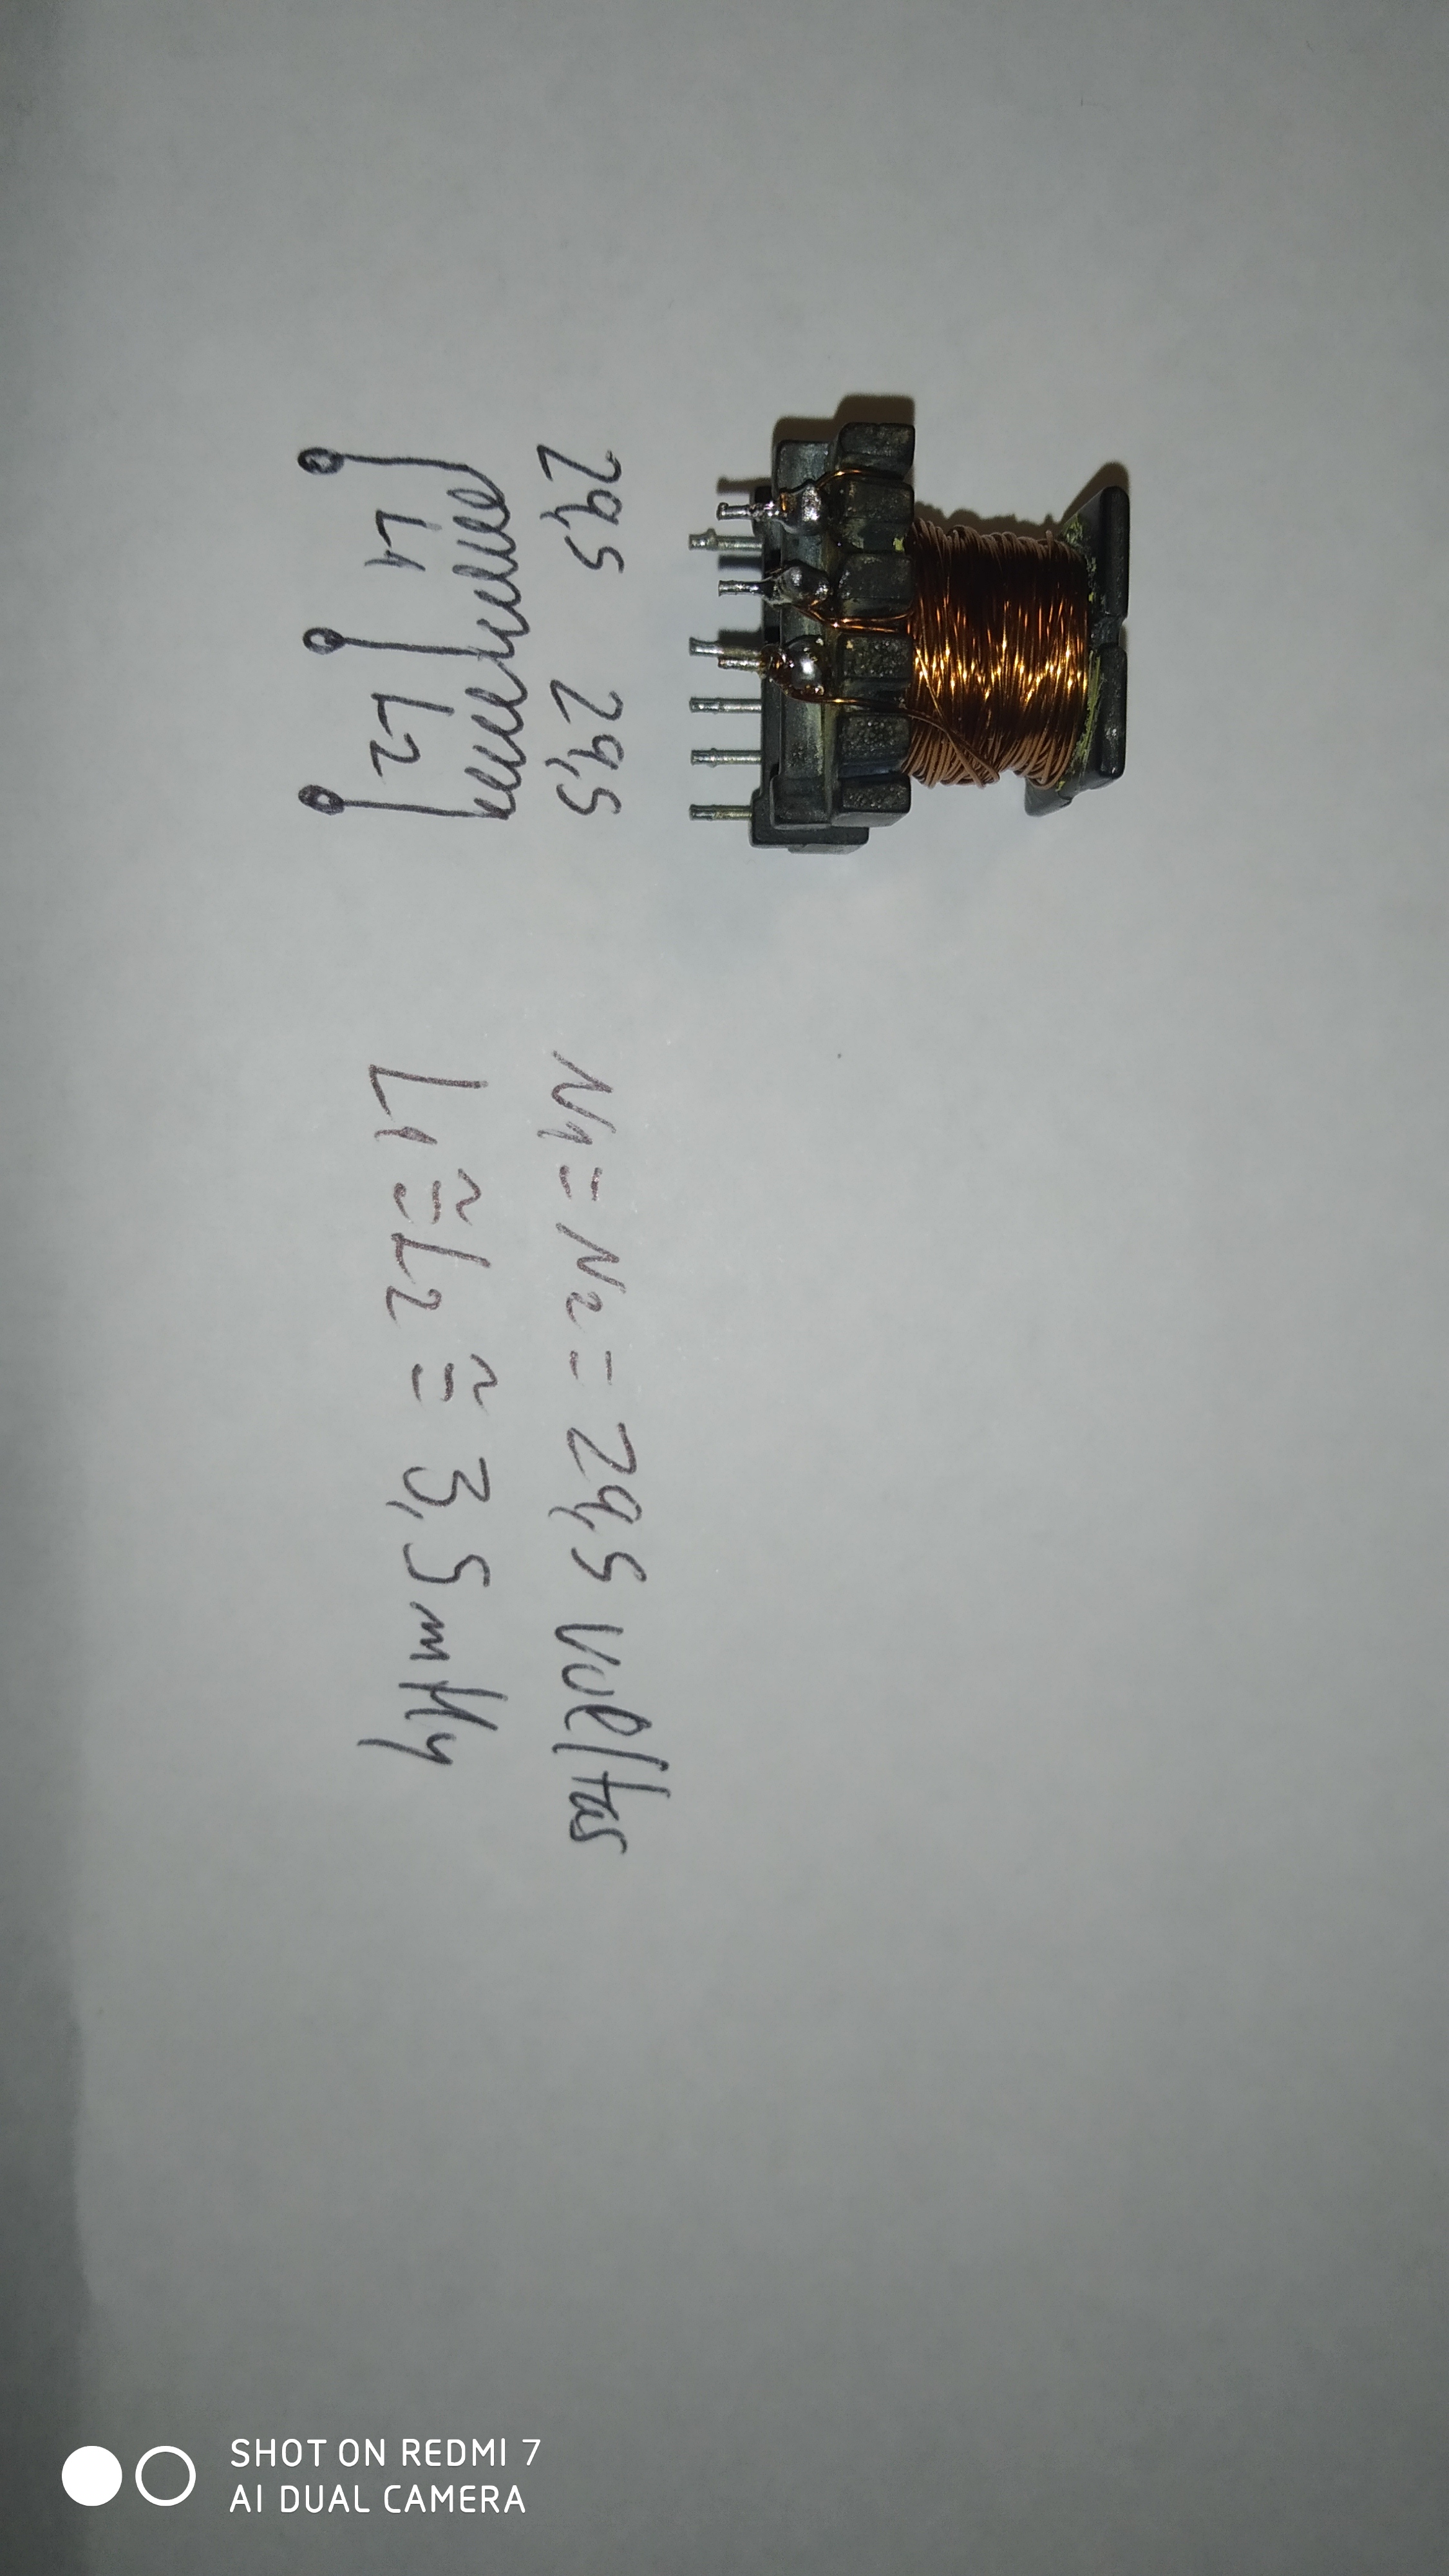 29,5 29,5
L1 L2
N1 = N2 = 29,5 vueltas
L1 ≅ L2 ≅ 3,5 mHy
SHOT ON REDMI 7
AI DUAL CAMERA